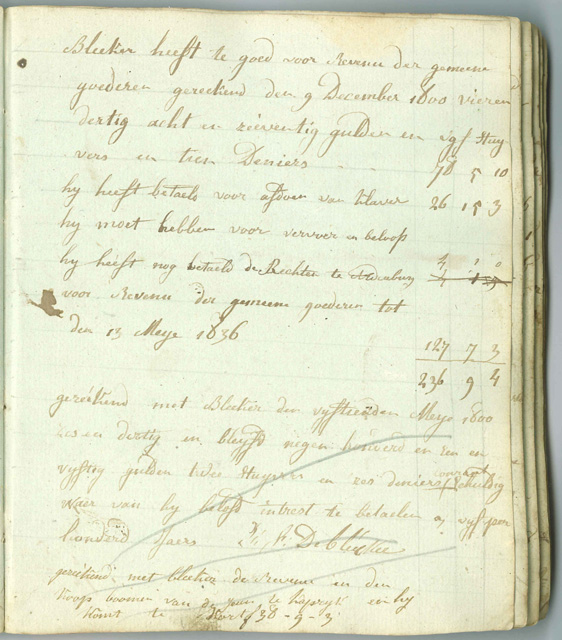 Bleeker heeft te goed voor Revenu der gemeene
goederen gereekend den 9 December 1800 vieren
dertig acht en zeeventig gulden en vyf stuy
vers en tien Deniers 78 5 10
hy heeft betaelt voor afdoen van klaver 26 15 3
hy moet hebben voor vervoer en beloop
4 1 0
hy heeft nog betaeld de Rechten te
voor Revenu der gemeene goederen tot
den 13 Meye 1836
127 7 3
236 9 4
gereekend met Bleeker den vyftienden Meye 1800
zes en dertig en blyft negen honderd en een en
vyftig gulden twee stuyvers en zes deniers courant schuldig
waer van hy belooft intrest te betaelen a vyf per
honderd Jaers
gereekend met bleeker de revenu en den
koop boomen van en hy
komt te kort f 38 - 9 - 3